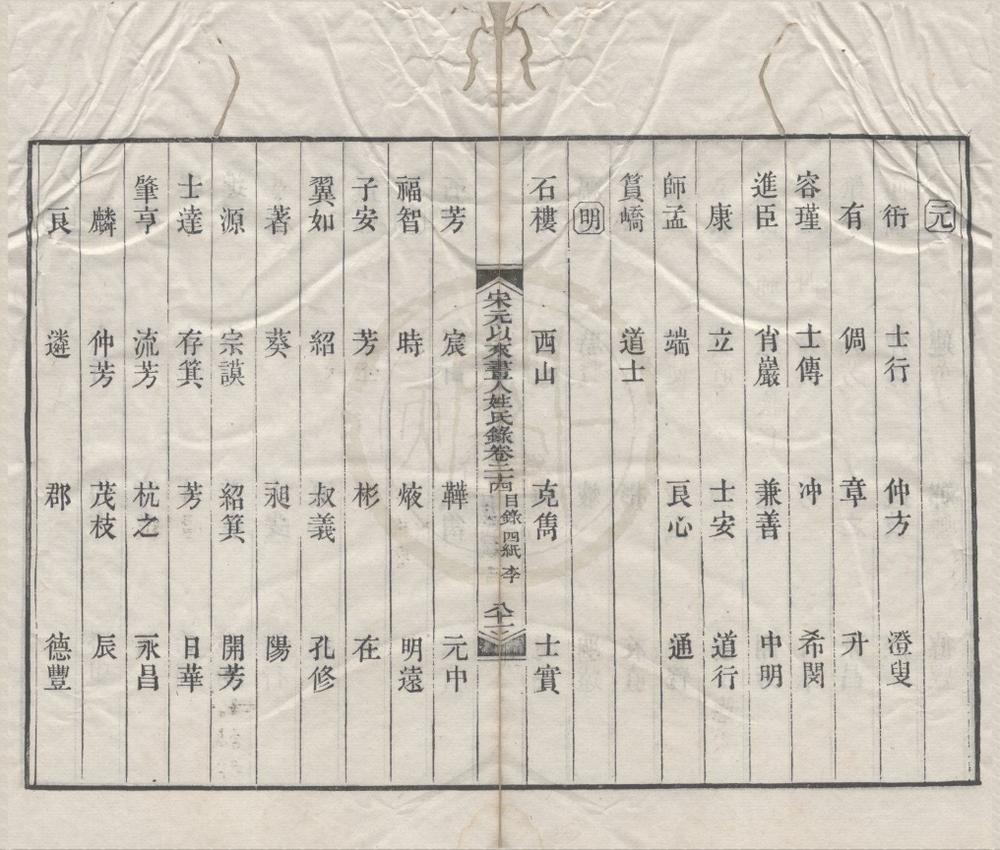 元
衎 士行 仲方 澄叟
有 倜 章 升
容瑾 士傳 冲 希閔
進臣 肖巖 兼善 中明
康 立 士安 道行
師孟 端 艮心 通
篔嶠 道士
明
石樓 西山 克雋 士實
宋元以來畫人姓氏錄卷二十四 目錄 四紙 李
芳 宸 鞾 元中
福智 時 燉 明遠
子安 芳 彬 在
翼如 紹 叔義 孔修
著 葵 昶 陽
源 宗謨 紹箕 開芳
士達 存箕 芳 日華
肇亨 流芳 杭之 永昌
麟 仲芳 茂枝 辰
艮 遴 郡 德豐